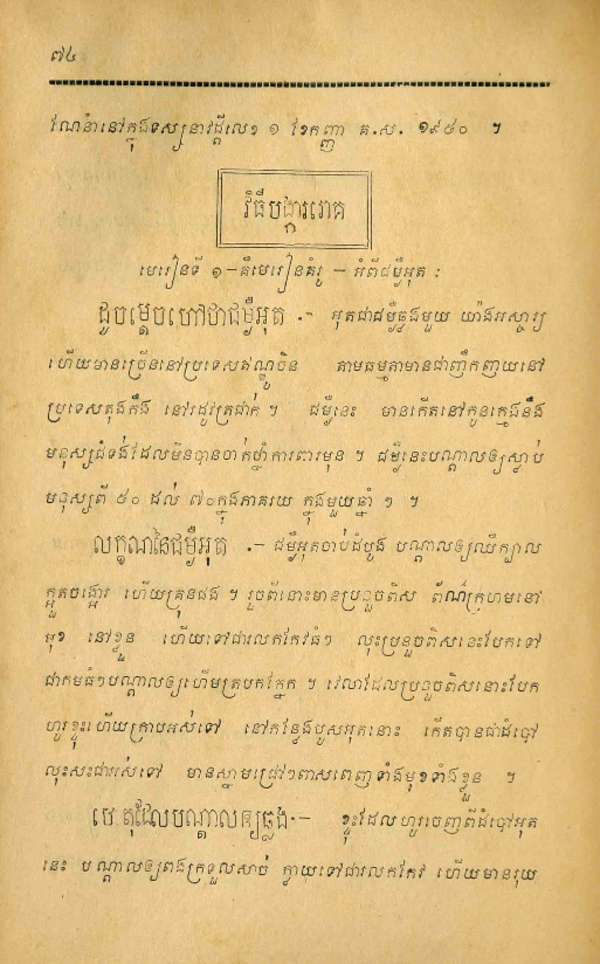 ៧៤
ណែនាំនៅក្នុងទស្សនាវដ្ដីលេខ ១ ខែកញ្ញា គ.ស. ១៩៥០ ។
វិធីបង្ការរោគ
មេរៀនទី ១-គឺមេរៀនគំរូ - អំពីជម្ងឺអុត :
ដូចម្ដេចហៅថាជម្ងឺអុត .- អុតជាជម្ងឺឆ្លងមួយ យ៉ាងអស្ចារ្យ
ហើយមានច្រើននៅប្រទេសឥណ្ឌូចិន តាមធម្មតាមានជាញឹកញយនៅ
ប្រទេសតុងកឹង នៅរដូវត្រជាក់ ។ ជម្ងឺនេះ មានកើតនៅកូនក្មេងនឹង
មនុស្សជំទង់ដែលមិនបានចាក់ថ្នាំការពារមុន ។ ជម្ងឺនេះបណ្ដាលឲ្យស្លាប់
មនុស្សពី ៥០ ដល់ ៧០ក្នុងភាគរយ ក្នុងមួយឆ្នាំ ៗ ។
លក្ខណនៃជម្ងឺអុត .- ជម្ងឺអុតចាប់ដំបូង បណ្ដាលឲ្យឈឺក្បាល
ក្អួតចង្អោរ ហើយគ្រុនផង ។ រួចពីនោះមានប្រនួចពិស ព័ណ៌ក្រហមនៅ
មុខ នៅខ្លួន ហើយទៅជារលកកែវធំៗ លុះប្រនួចពិសនេះបែកទៅ
ជាកមធំៗបណ្ដាលឲ្យហើមត្របកភ្នែក ។ វេលាដែលប្រនួចពិសនោះបែក
ហូរខ្ទុះហើយក្រាបអស់ទៅ នៅកន្លែងបួសអុតនោះ កើតបានជាដំបៅ
លុះសះជាអស់ទៅ មានស្នាមជ្រៅៗពាសពេញទាំងមុខទាំងខ្លួន ។
ហេតុដែលបណ្ដាលឲ្យឆ្លង.- ខ្ទុះដែលហូរចេញពីដំបៅអុត
នេះ បណ្ដាលឲ្យពងក្រទួលសាច់ ក្លាយទៅជារលកកែវ ហើយមានរុយ